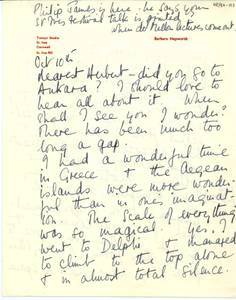 Philip James is here - he says your
St Ives Festival talk is printed
When do Mellon lectures come out
Trewyn Studio
St. Ives
Cornwall
Barbara Hepworth
Oct 10th
Dearest Herbert - did you go to
Ankara? I should love to
hear all about it. When
shall I see you I wonder.
There has been much too
long a gap.
I had a wonderful time
in Greece & the Aegean
islands were more wonder-
ful than in one's imagina-
tion. The Scale of everything
was so magical. Yes, I
went to Delphi & managed
to climb to the top alone
& in almost total silence.